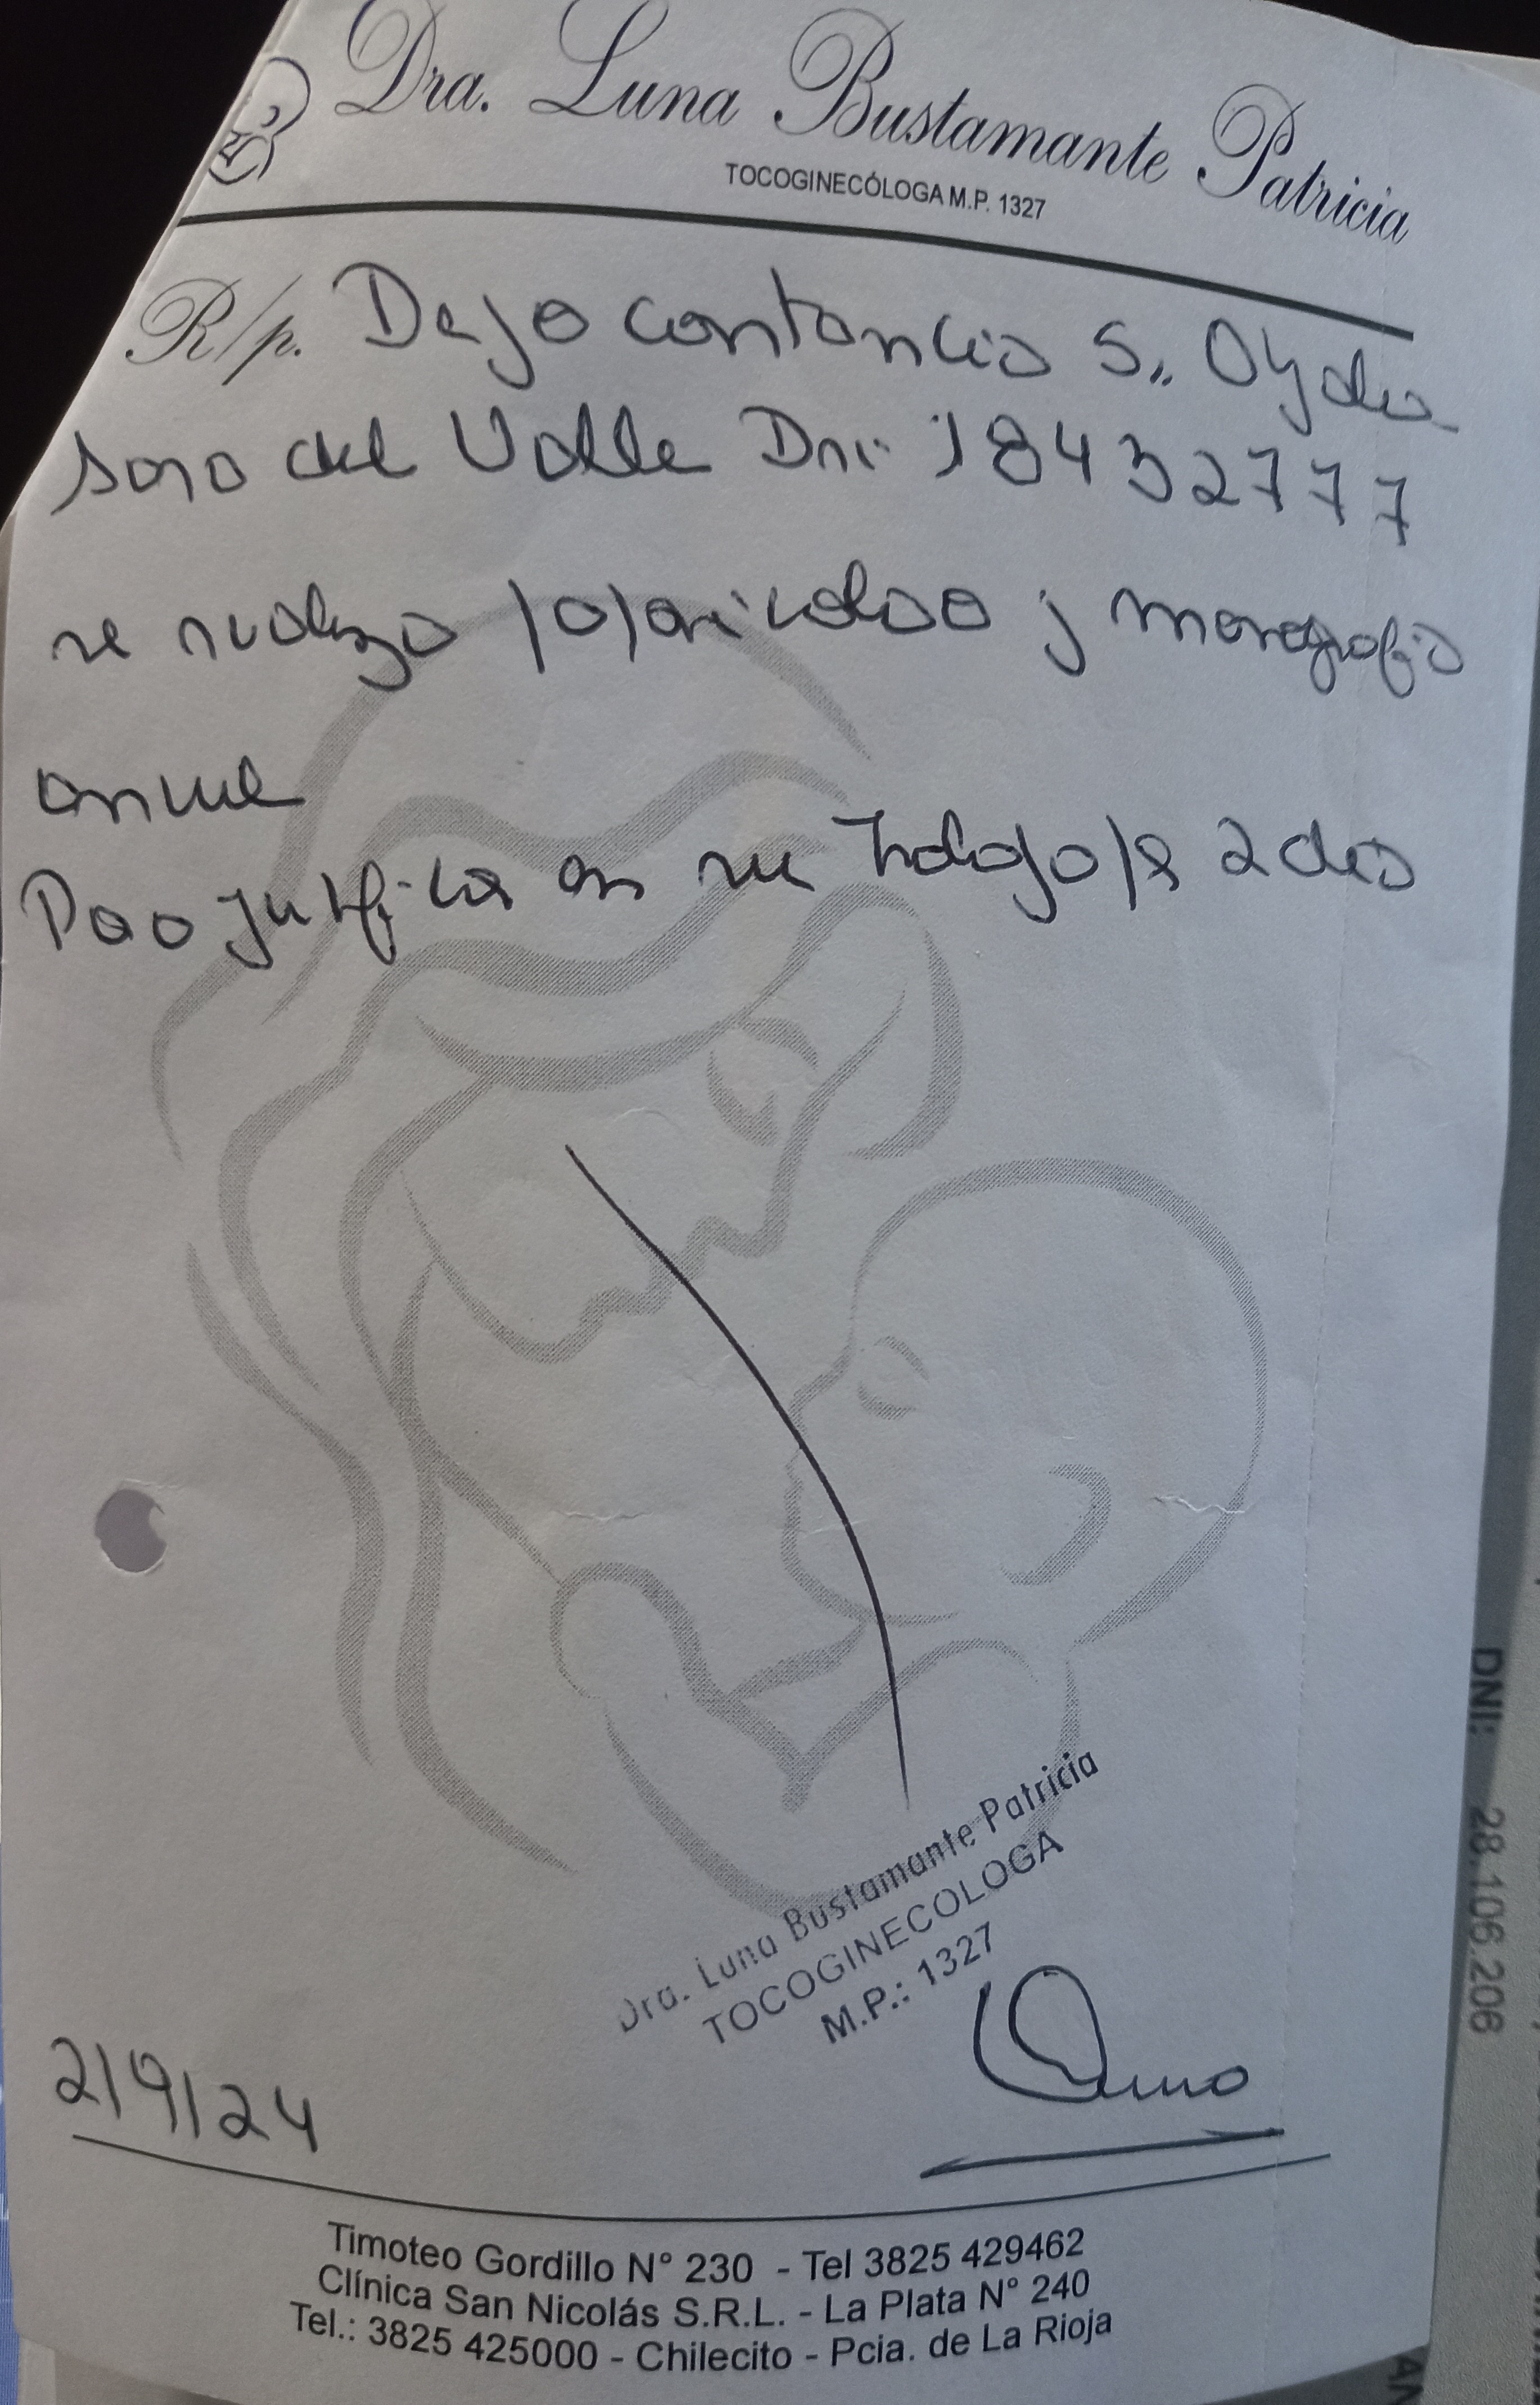 Dra. Luna Bustamante Patricia
TOCOGINECÓLOGA M.P. 1327
R/p. Dejo constancia S. Oyda
Soro del Valle Dni: 18432777
se realizo papanicolao y mamografia
anual
Para justificar en su trabajo x 2 dias
Dra. Luna Bustamante Patricia
TOCOGINECOLOGA
M.P.: 1327
2/9/24
Timoteo Gordillo N° 230 - Tel 3825 429462
Clínica San Nicolás S.R.L. - La Plata N° 240
Tel.: 3825 425000 - Chilecito - Pcia. de La Rioja
DNI: 28.106.206